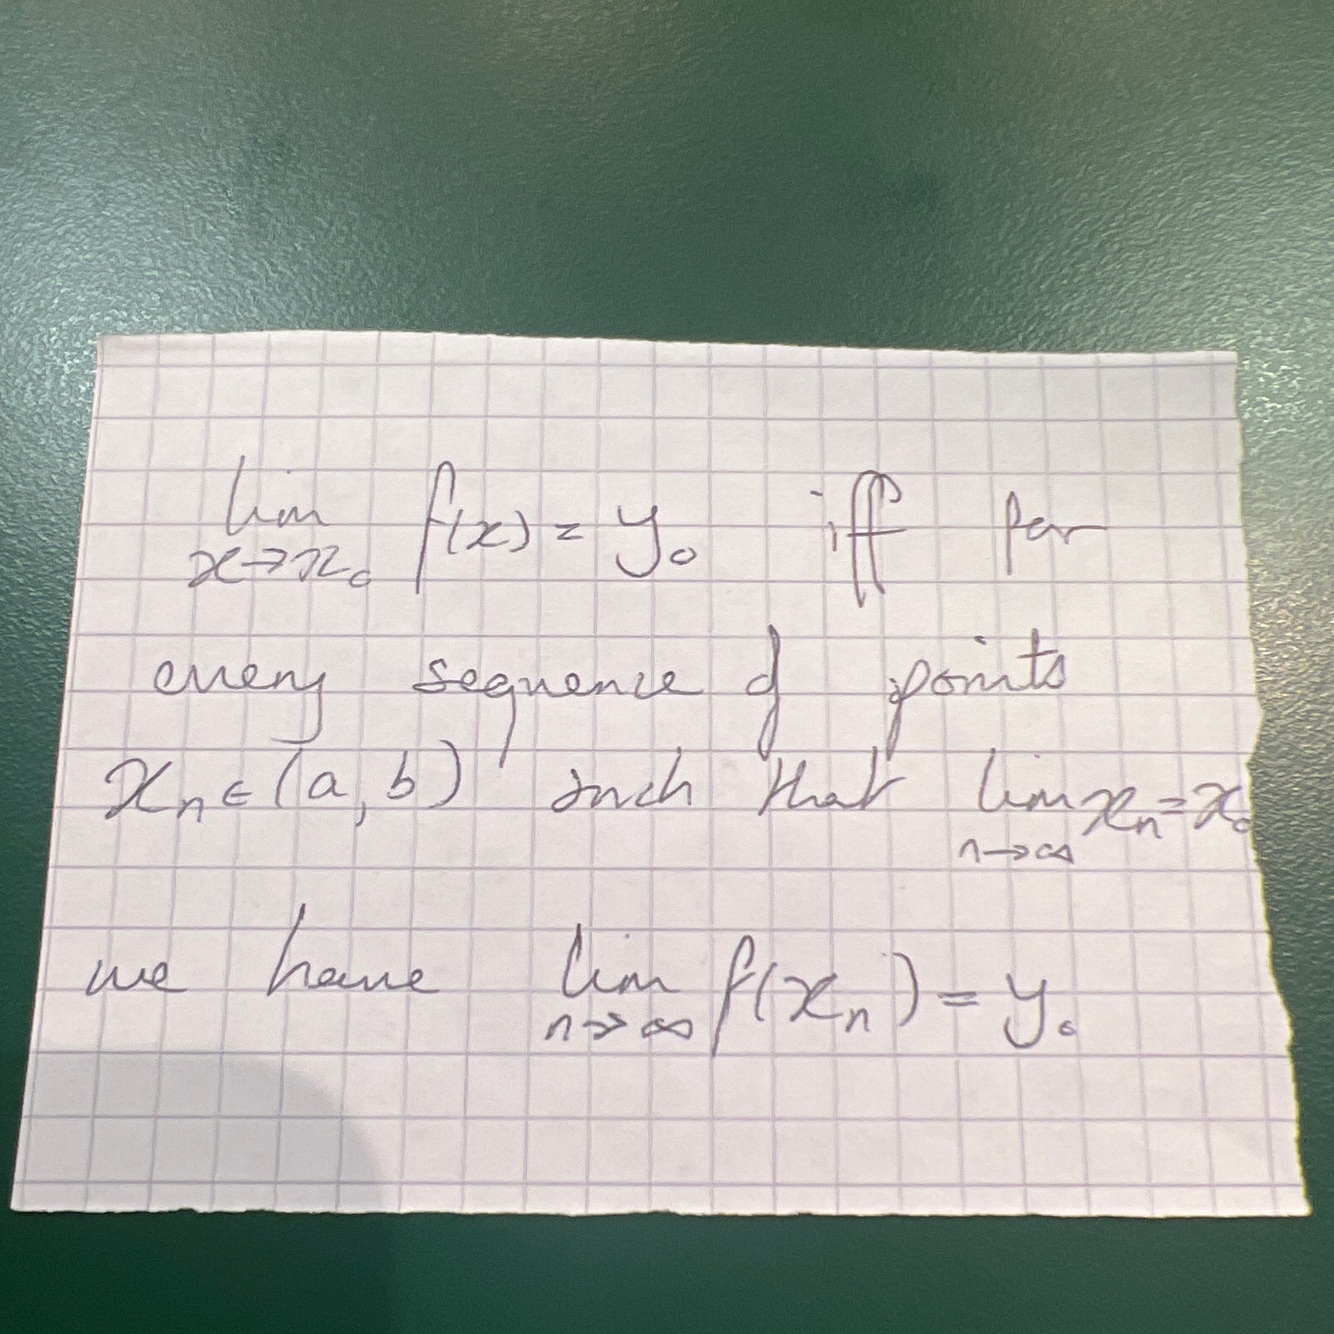 lim x→x₀ f(x) = y₀ iff for
every sequence of points
xₙ ∈ (a, b) such that lim n→∞ xₙ = x₀
we have lim n→∞ f(xₙ) = y₀